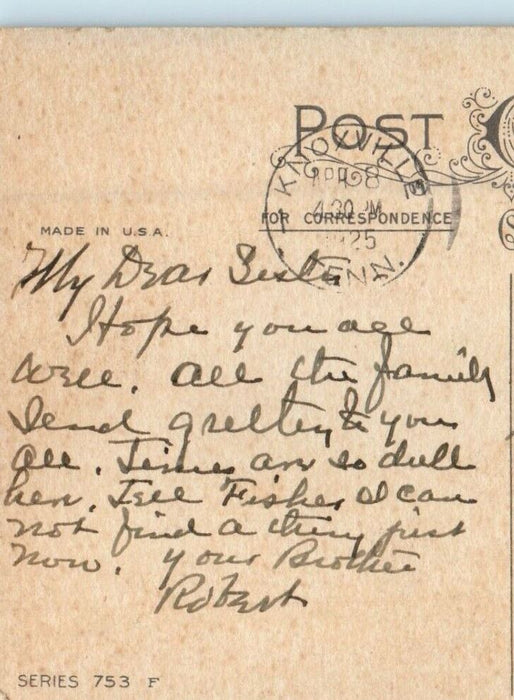 POST
KNOXVILLE
APR 8
4:30 PM
1925
TENN.
FOR CORRESPONDENCE
MADE IN U.S.A.
My Dear Sister
Hope you all
well. all the family
Send greeting to you
all. Times are so dull
here. Tell Fisher I can
not find a thing just
now. Your Brother
Robert
SERIES 753 F